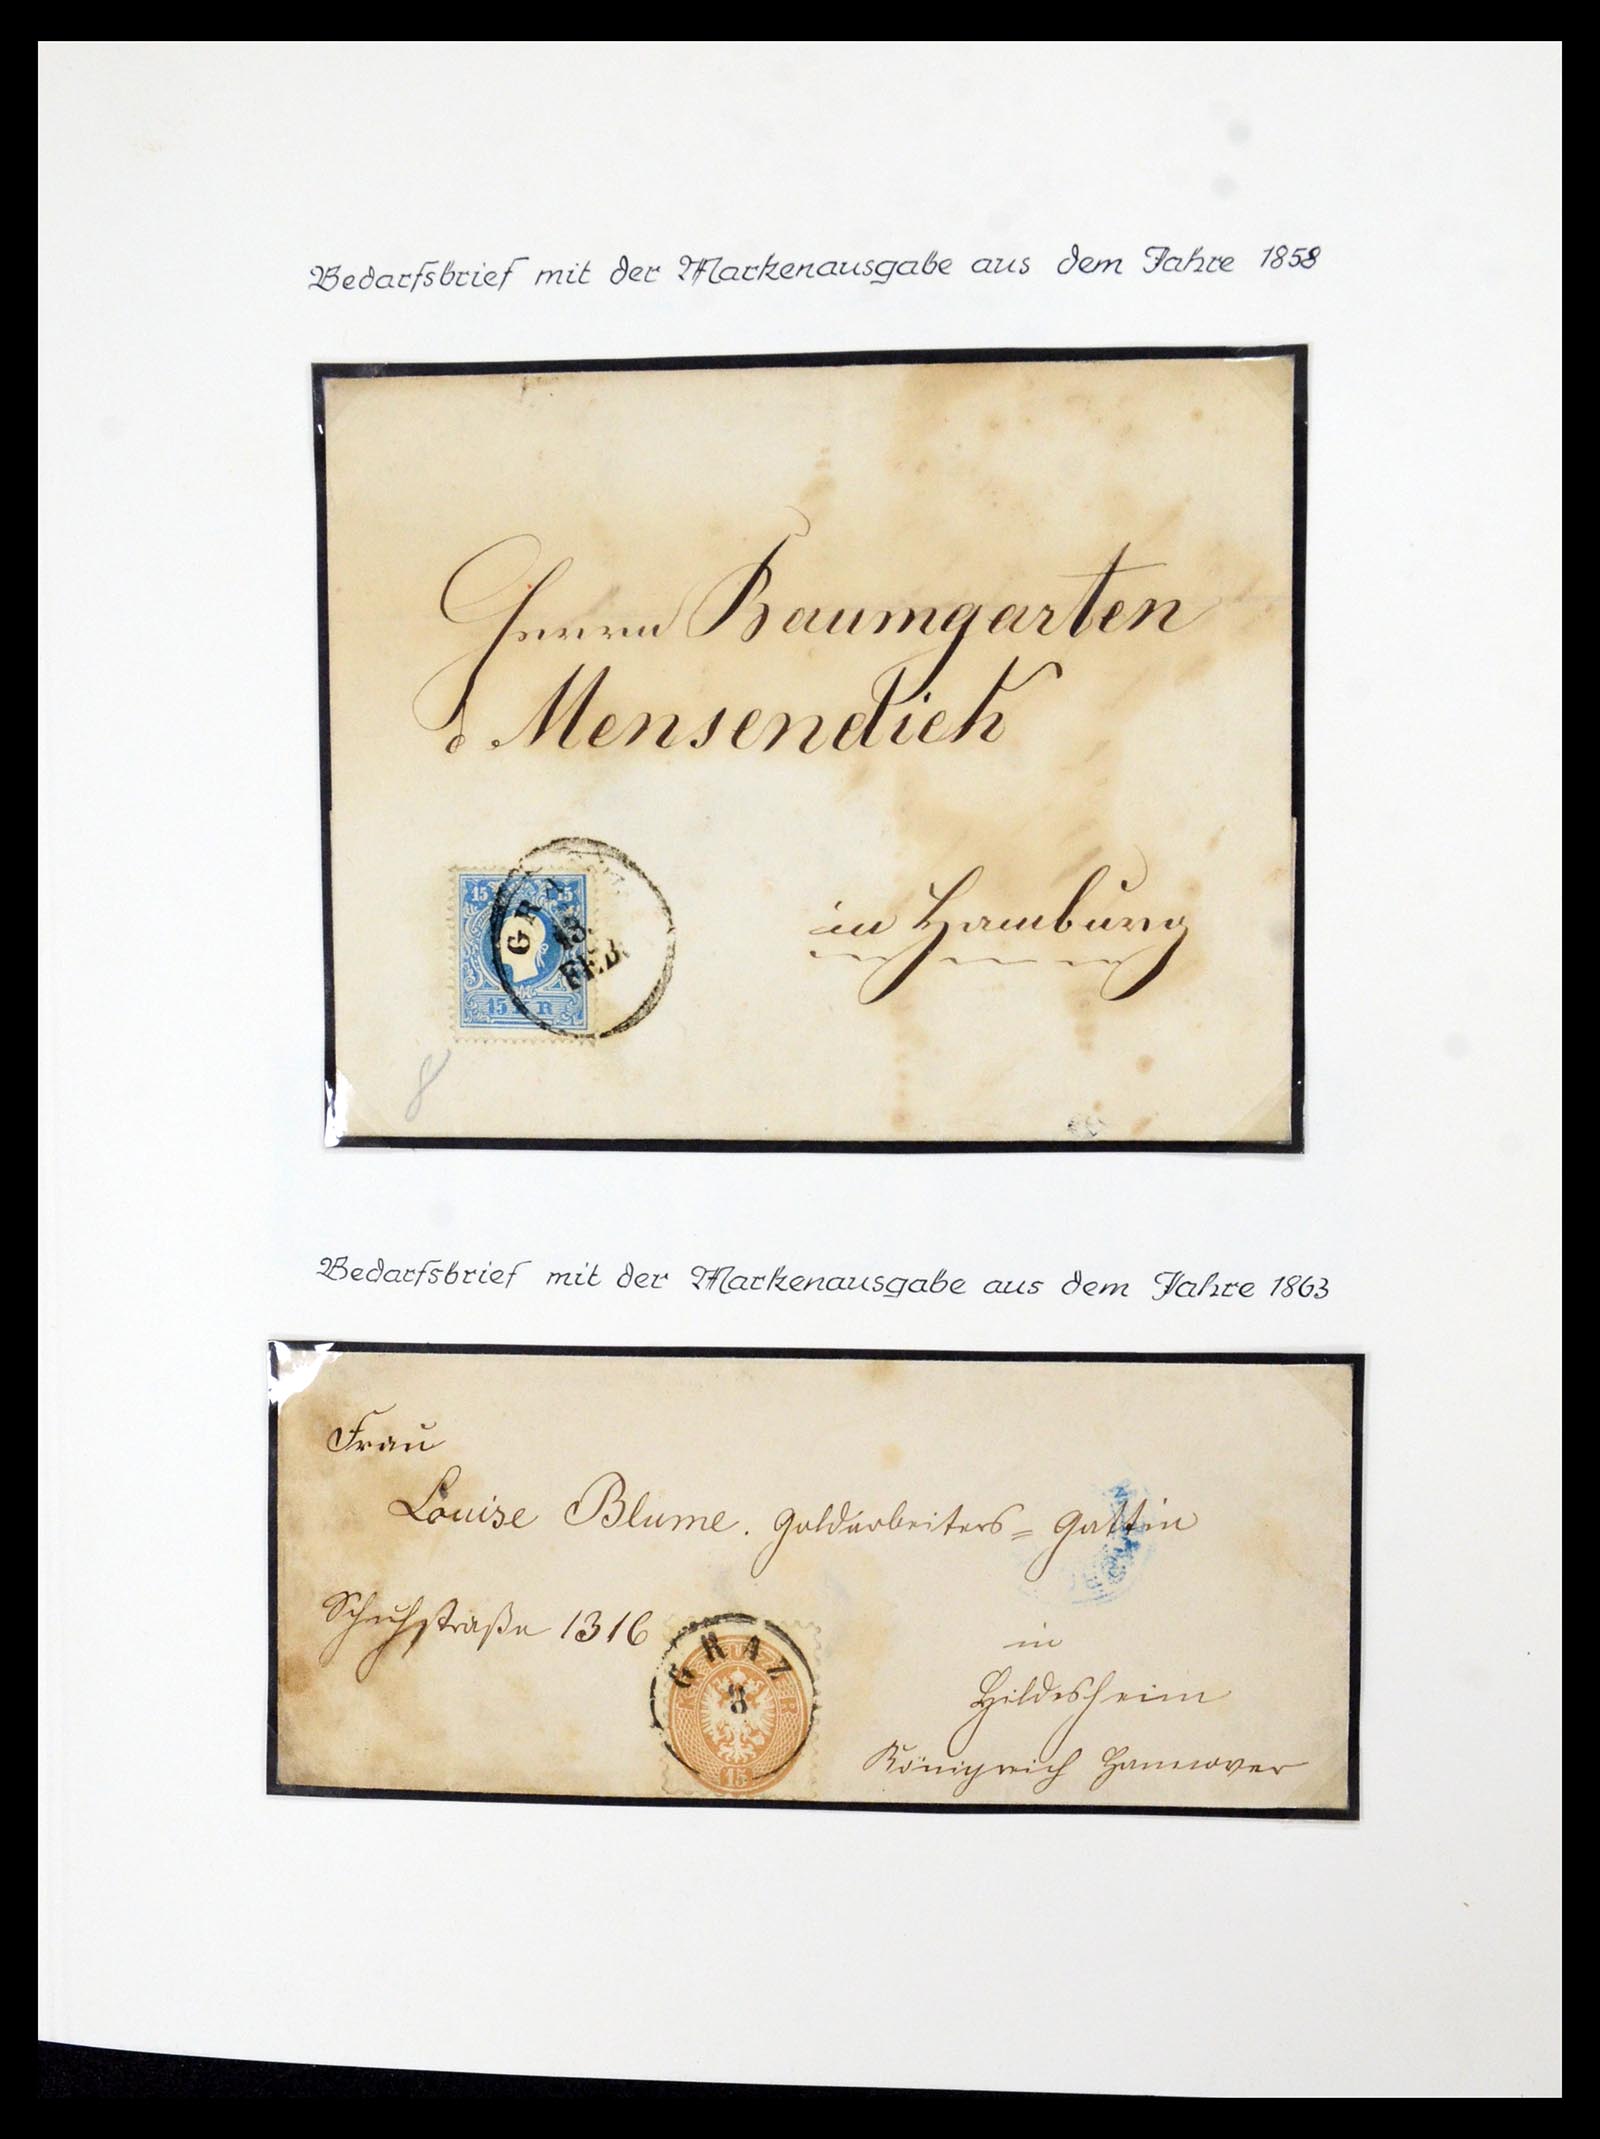 Bedarfsbrief mit der Markenausgabe aus dem Jahre 1858
Herrn Baumgarten
& Mensendieck
15 15
GRAZ
13.
FEB.
15 KR
in Hamburg
8
Bedarfsbrief mit der Markenausgabe aus dem Jahre 1863
Frau
Louise Blume. Goldarbeiters = Gattin
Schuhstraße 1316
GRAZ
8
15
in
Hildesheim
Königreich Hannover